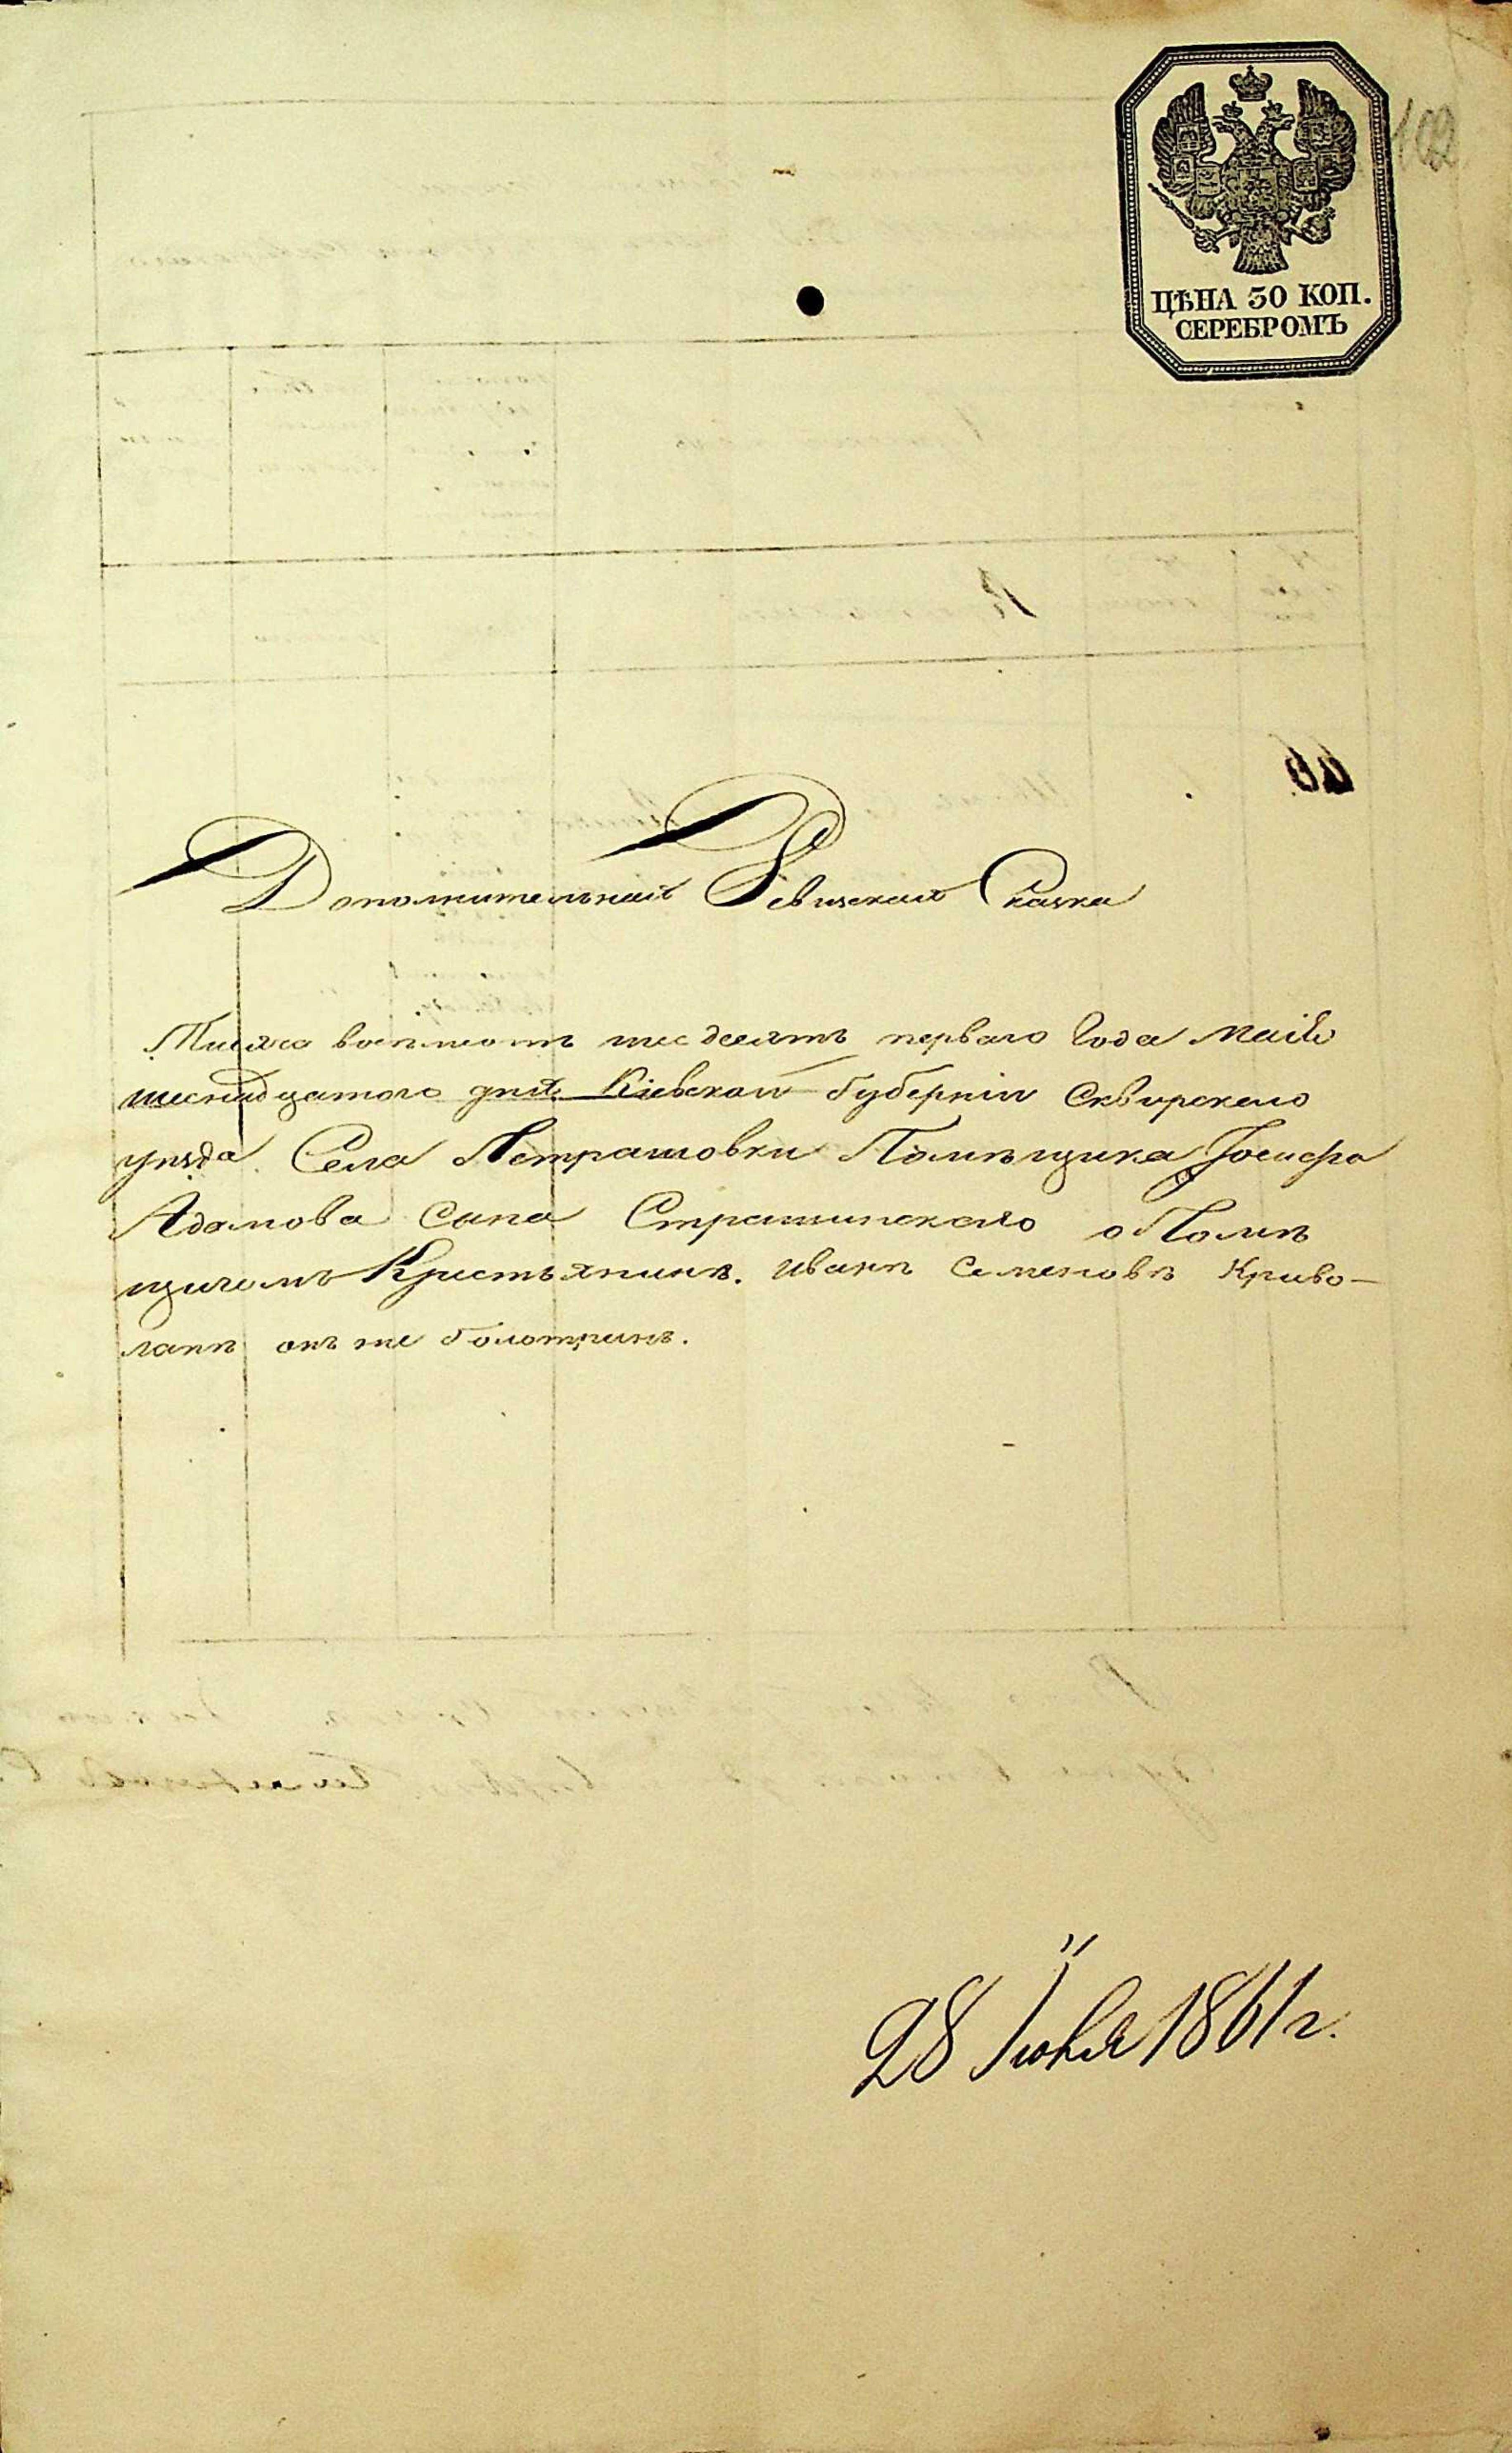 102
ЦѢНА 30 КОП.
СЕРЕБРОМЪ
Дополнительная Ревизская Сказка
Тысяча восемсотъ шесдесятъ перваго Года Маія
шеснадцатого дня Кіевской Губерніи Сквирскаго
уѣзда Села Петрашовки Помѣщика Іосифа
Адамова Сына Страшинскаго о Помѣ
щичомъ Крестьянинѣ. Иванѣ Семеновѣ Криво-
лапѣ онъ же Болотринъ.
28 Іюня 1861 г.